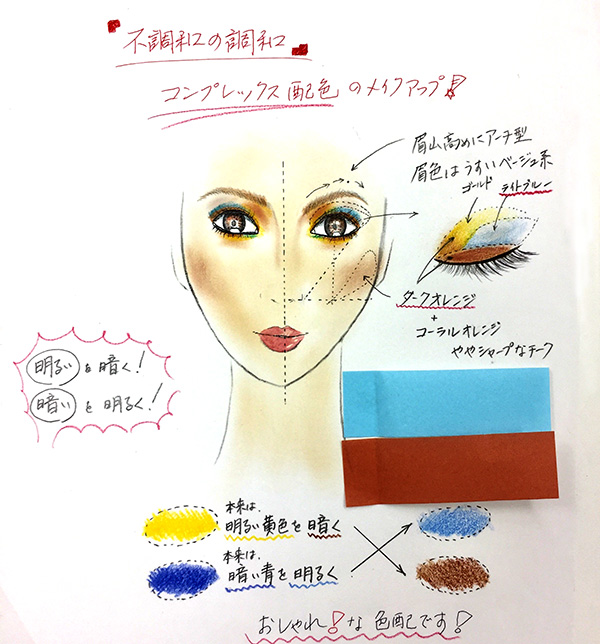 "不調和の調和"
コンプレックス配色のメイクアップ!
眉山高めにアーチ型
眉色はうすいベージュ系
ゴールド
ライトブルー
ダークオレンジ
+
コーラルオレンジ
ややシャープなチーク
明るいを暗く!
暗いを明るく!
本来は、
明るい黄色を暗く
本来は、
暗い青を明るく
おしゃれ!な色配です!